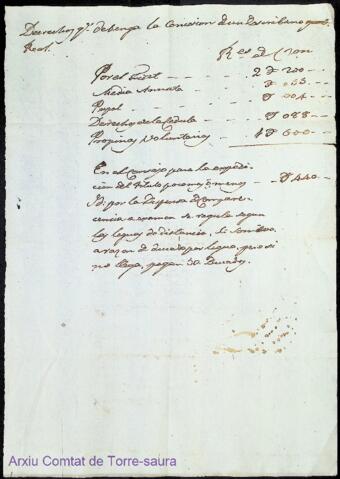 Derechos q.e debenga la Concesion de un Escribano
Real.
R.s de Vellon
Por el - - - 2 D 200 - -
Media Annata - - - D 033 - -
Papel - - - D 004 - -
Derechos de la Cedula - - D 088 - -
Propinas Voluntarias - - 1 D 600 - -
En el consejo para la expedi-
cion del titulo poco mas o menos - - D 440 - -
Id: por la Dispensa de Compare-
cencia a examen se regula segun
las leguas de distancia, si son
a razon de ducado por legua, pero si
no llega, pagan 50 Ducados.
Arxiu Comtat de Torre-saura